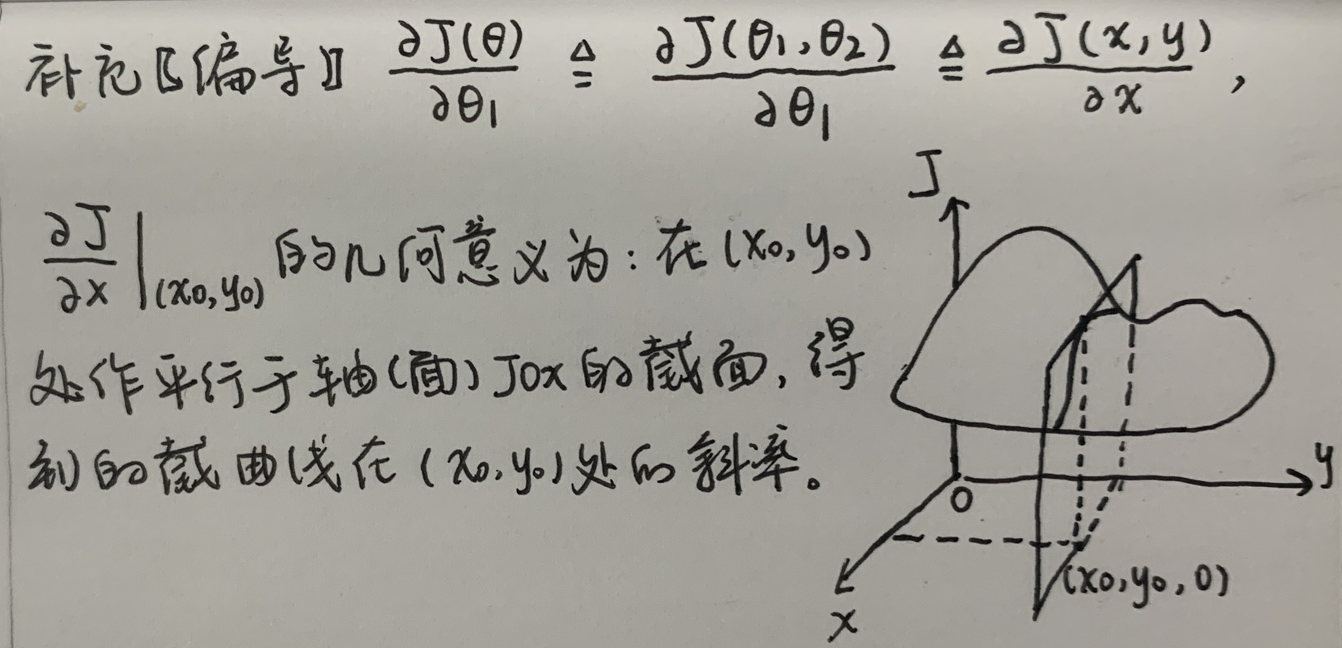 补充〖偏导〗 ∂J(θ)/∂θ₁ ≜ ∂J(θ₁,θ₂)/∂θ₁ ≜ ∂J(x,y)/∂x ,
∂J/∂x |(x₀,y₀) 的几何意义为：在(x₀,y₀)
处作平行于轴(面)JOx的截面，得
到的截曲线在(x₀,y₀)处的斜率。
J
y
O
(x₀,y₀,0)
x